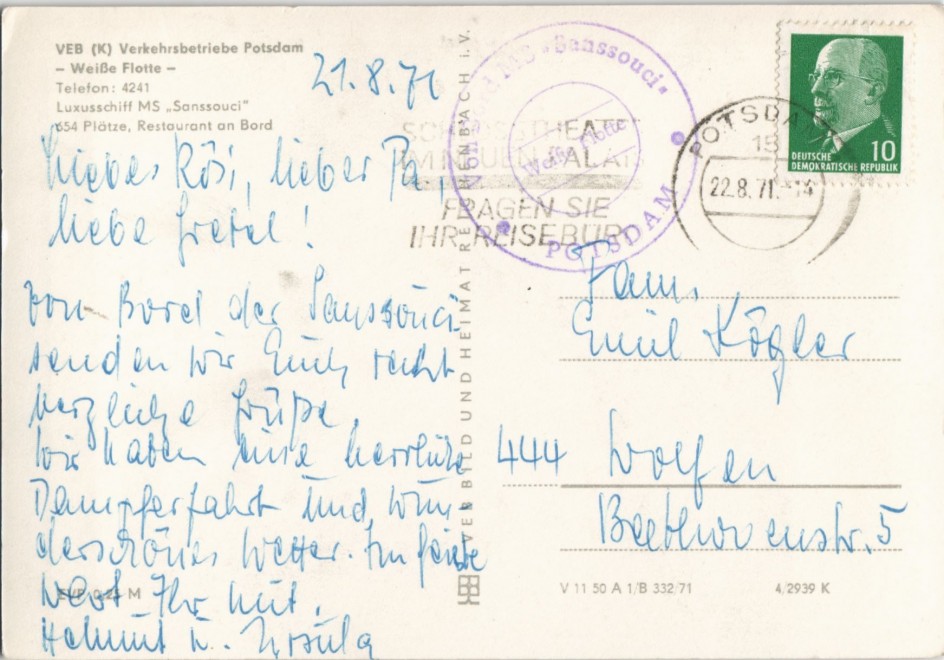 VEB (K) Verkehrsbetriebe Potsdam
– Weiße Flotte –
Telefon: 4241
Luxusschiff MS „Sanssouci“
654 Plätze, Restaurant an Bord
21.8.71
Liebes Rösi, lieber
liebe Gretel!
von Bord der Sanssouci
senden wir Euch recht
herzliche Grüße.
Wir haben eine herrliche
Dampferfahrt und wun-
derschönes Wetter. Im Geiste
seid Ihr mit.
Helmut u. Ursula
EVP 0,25 M
VEB BILD UND HEIMAT REICHENBACH I. V.
An Bord MS „Sanssouci“
Weiße Flotte
POTSDAM
SCHLOSSTHEATER
IM NEUEN PALAIS
FRAGEN SIE
IHR REISEBÜRO
POTSDAM
15
22.8.71.-14
DEUTSCHE
DEMOKRATISCHE REPUBLIK
10
Fam.
Emil Kögler
444 Wolfen
Beethovenstr. 5
V 11 50 A 1/B 332/71
4/2939 K